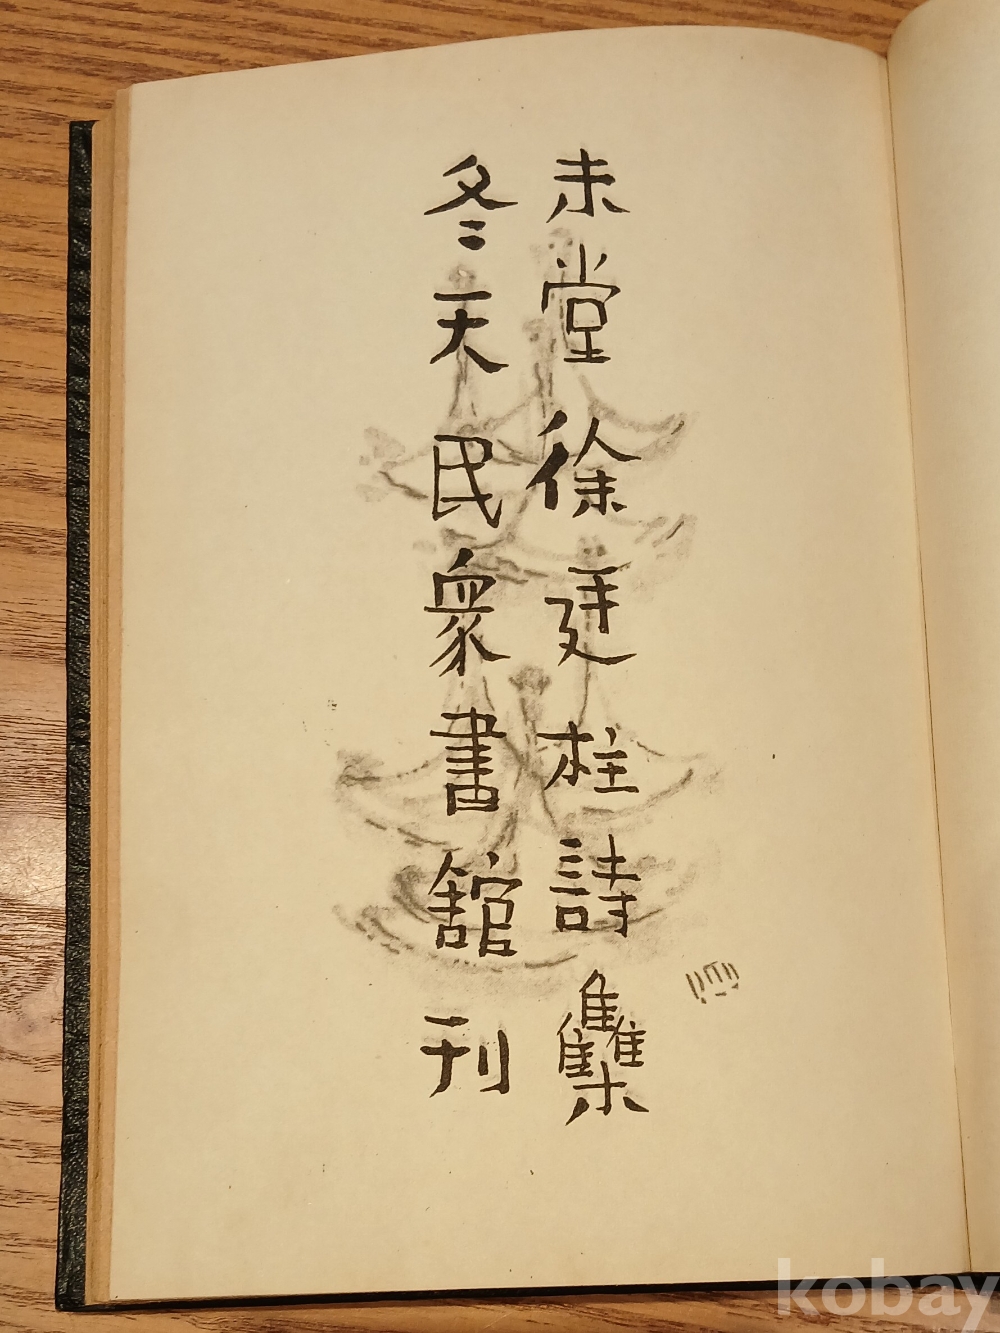 未堂徐廷柱詩雧
冬天民衆書舘刊
kobay